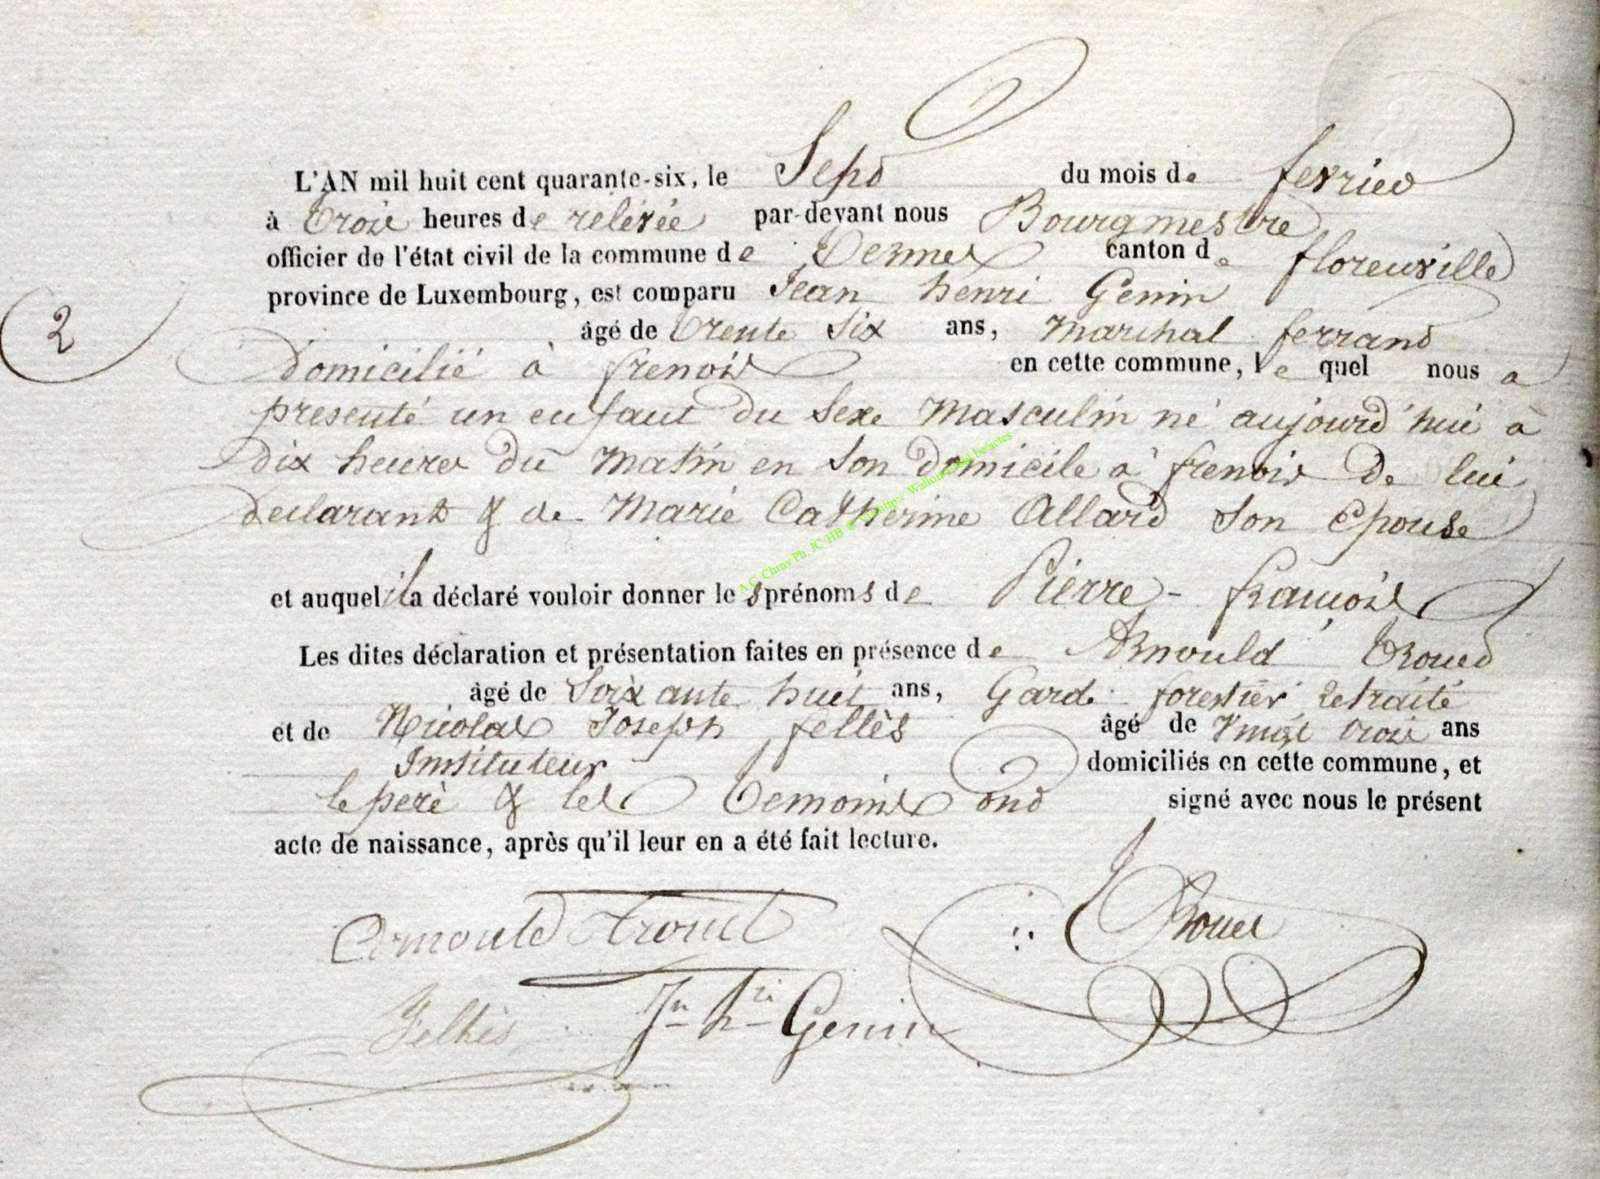 L'AN mil huit cent quarante-six, le Sept du mois de fevrier
à trois heures de rélévée par-devant nous Bourgmestre
officier de l'état civil de la commune de Termes canton de florenville
province de Luxembourg, est comparu Jean henri Genin
2
âgé de trente six ans, Marchal ferrand
Domicilié à frenois en cette commune, le quel nous a
presenté un enfant du Sexe Masculin né aujourd'hui à
dix heures du Matin en Son domicile à frenois De lui
declarant & de Marie Catherine Allard Son Epouse
et auquel il a déclaré vouloir donner les prénoms de Pierre - françois
Les dites déclaration et présentation faites en présence de Arnould Trouet
âgé de Soixante huit ans, Garde forestier retraité
et de Nicolas Joseph felles âgé de Vingt trois ans
Instituteur domiciliés en cette commune, et
le pere & les temoins ont signé avec nous le présent
acte de naissance, après qu'il leur en a été fait lecture.
Arnould Trouet
Jn hri Genin